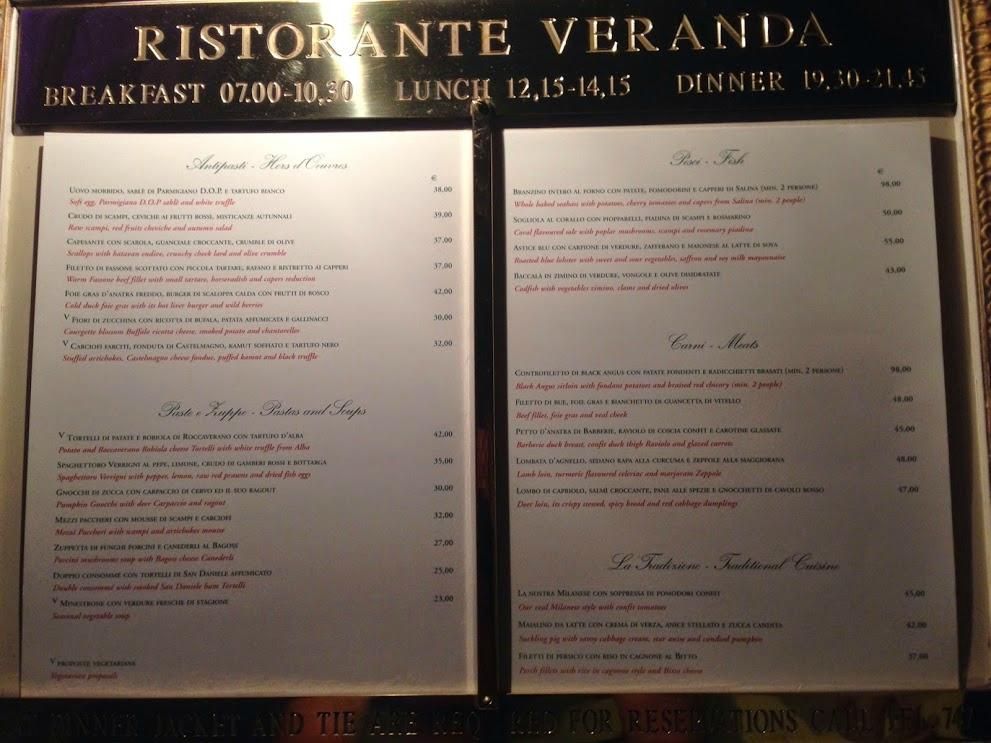 RISTORANTE VERANDA
BREAKFAST 07.00-10,30 LUNCH 12,15-14,15 DINNER 19,30-21,45
Antipasti - Hors d'Oeuvres
€
Uovo morbido, sablè di Parmigiano D.O.P. e tartufo bianco 38,00
Soft egg, Parmigiano D.O.P sablè and white truffle
Crudo di scampi, ceviche ai frutti rossi, misticanze autunnali 39,00
Raw scampi, red fruits cheviche and autumn salad
Capesante con scarola, guanciale croccante, crumble di olive 37,00
Scallops with batavan endive, crunchy cheek lard and olive crumble
Filetto di fassone scottato con piccola tartare, rafano e ristretto ai capperi 37,00
Warm Fassone beef fillet with small tartare, horseradish and capers reduction
Foie gras d'anatra freddo, burger di scaloppa calda con frutti di bosco 42,00
Cold duck foie gras with its hot liver burger and wild berries
V Fiori di zucchina con ricotta di bufala, patata affumicata e gallinacci 30,00
Courgette blossom Buffalo ricotta cheese, smoked potato and chanterelles
V Carciofi farciti, fonduta di Castelmagno, kamut soffiato e tartufo nero 32,00
Stuffed artichokes, Castelmagno cheese fondue, puffed kamut and black truffle
Paste e Zuppe - Pastas and Soups
V Tortelli di patate e robiola di Roccaverano con tartufo d'alba 42,00
Potato and Roccaverano Robiola cheese Tortelli with white truffle from Alba
Spaghettoro Verrigni al pepe, limone, crudo di gamberi rossi e bottarga 35,00
Spaghettoro Verrigni with pepper, lemon, raw red prawns and dried fish eggs
Gnocchi di zucca con carpaccio di cervo ed il suo ragout 30,00
Pumpkin Gnocchi with deer Carpaccio and ragout
Mezzi paccheri con mousse di scampi e carciofi 32,00
Mezzi Paccheri with scampi and artichokes mousse
Zuppetta di funghi porcini e canederli al Bagoss 27,00
Porcini mushrooms soup with Bagoss cheese Canederli
Doppio consommé con tortelli di San Daniele affumicato 25,00
Double consommé with smoked San Daniele ham Tortelli
V Minestrone con verdure fresche di stagione 23,00
Seasonal vegetable soup
V proposte vegetariane
Vegetarian proposals
Pesci - Fish
€
Branzino intero al forno con patate, pomodorini e capperi di Salina (min. 2 persone) 98,00
Whole baked seabass with potatoes, cherry tomatoes and capers from Salina (min. 2 people)
Sogliola al corallo con pioppareli, piadina di scampi e rosmarino 50,00
Coral flavoured sole with poplar mushrooms, scampi and rosemary piadina
Astice blu con carpione di verdure, zafferano e maionese al latte di soya 55,00
Roasted blue lobster with sweet and sour vegetables, saffron and soy milk mayonnaise
Baccalà in zimino di verdure, vongole e olive disidratate 43,00
Codfish with vegetables zimino, clams and dried olives
Carni - Meats
Controfiletto di black angus con patate fondenti e radicchietti brasati (min. 2 persone) 98,00
Black Angus sirloin with fondant potatoes and braised red chicory (min. 2 people)
Filetto di bue, foie gras e bianchetto di guancetta di vitello 48,00
Beef fillet, foie gras and veal cheek
Petto d'anatra di Barberie, raviolo di coscia confit e carotine glassate 45,00
Barberie duck breast, confit duck thigh Raviolo and glazed carrots
Lombata d'agnello, sedano rapa alla curcuma e zeppole alla maggiorana 48,00
Lamb loin, turmeric flavoured celeriac and marjoram Zeppole
Lombo di capriolo, salmì croccante, pane alle spezie e gnocchetti di cavolo rosso 47,00
Deer loin, its crispy stewed, spicy bread and red cabbage dumplings
La Tradizione - Traditional Cuisine
La nostra Milanese con soppressa di pomodori confit 45,00
Our veal Milanese style with confit tomatoes
Maialino da latte con crema di verza, anice stellato e zucca candita 42,00
Suckling pig with savoy cabbage cream, star anise and candied pumpkin
Filetti di persico con riso in cagnone al Bitto 37,00
Perch fillets with rice in cagnone style and Bitto cheese
DINNER JACKET AND TIE ARE REQUIRED FOR RESERVATIONS CALL TEL.